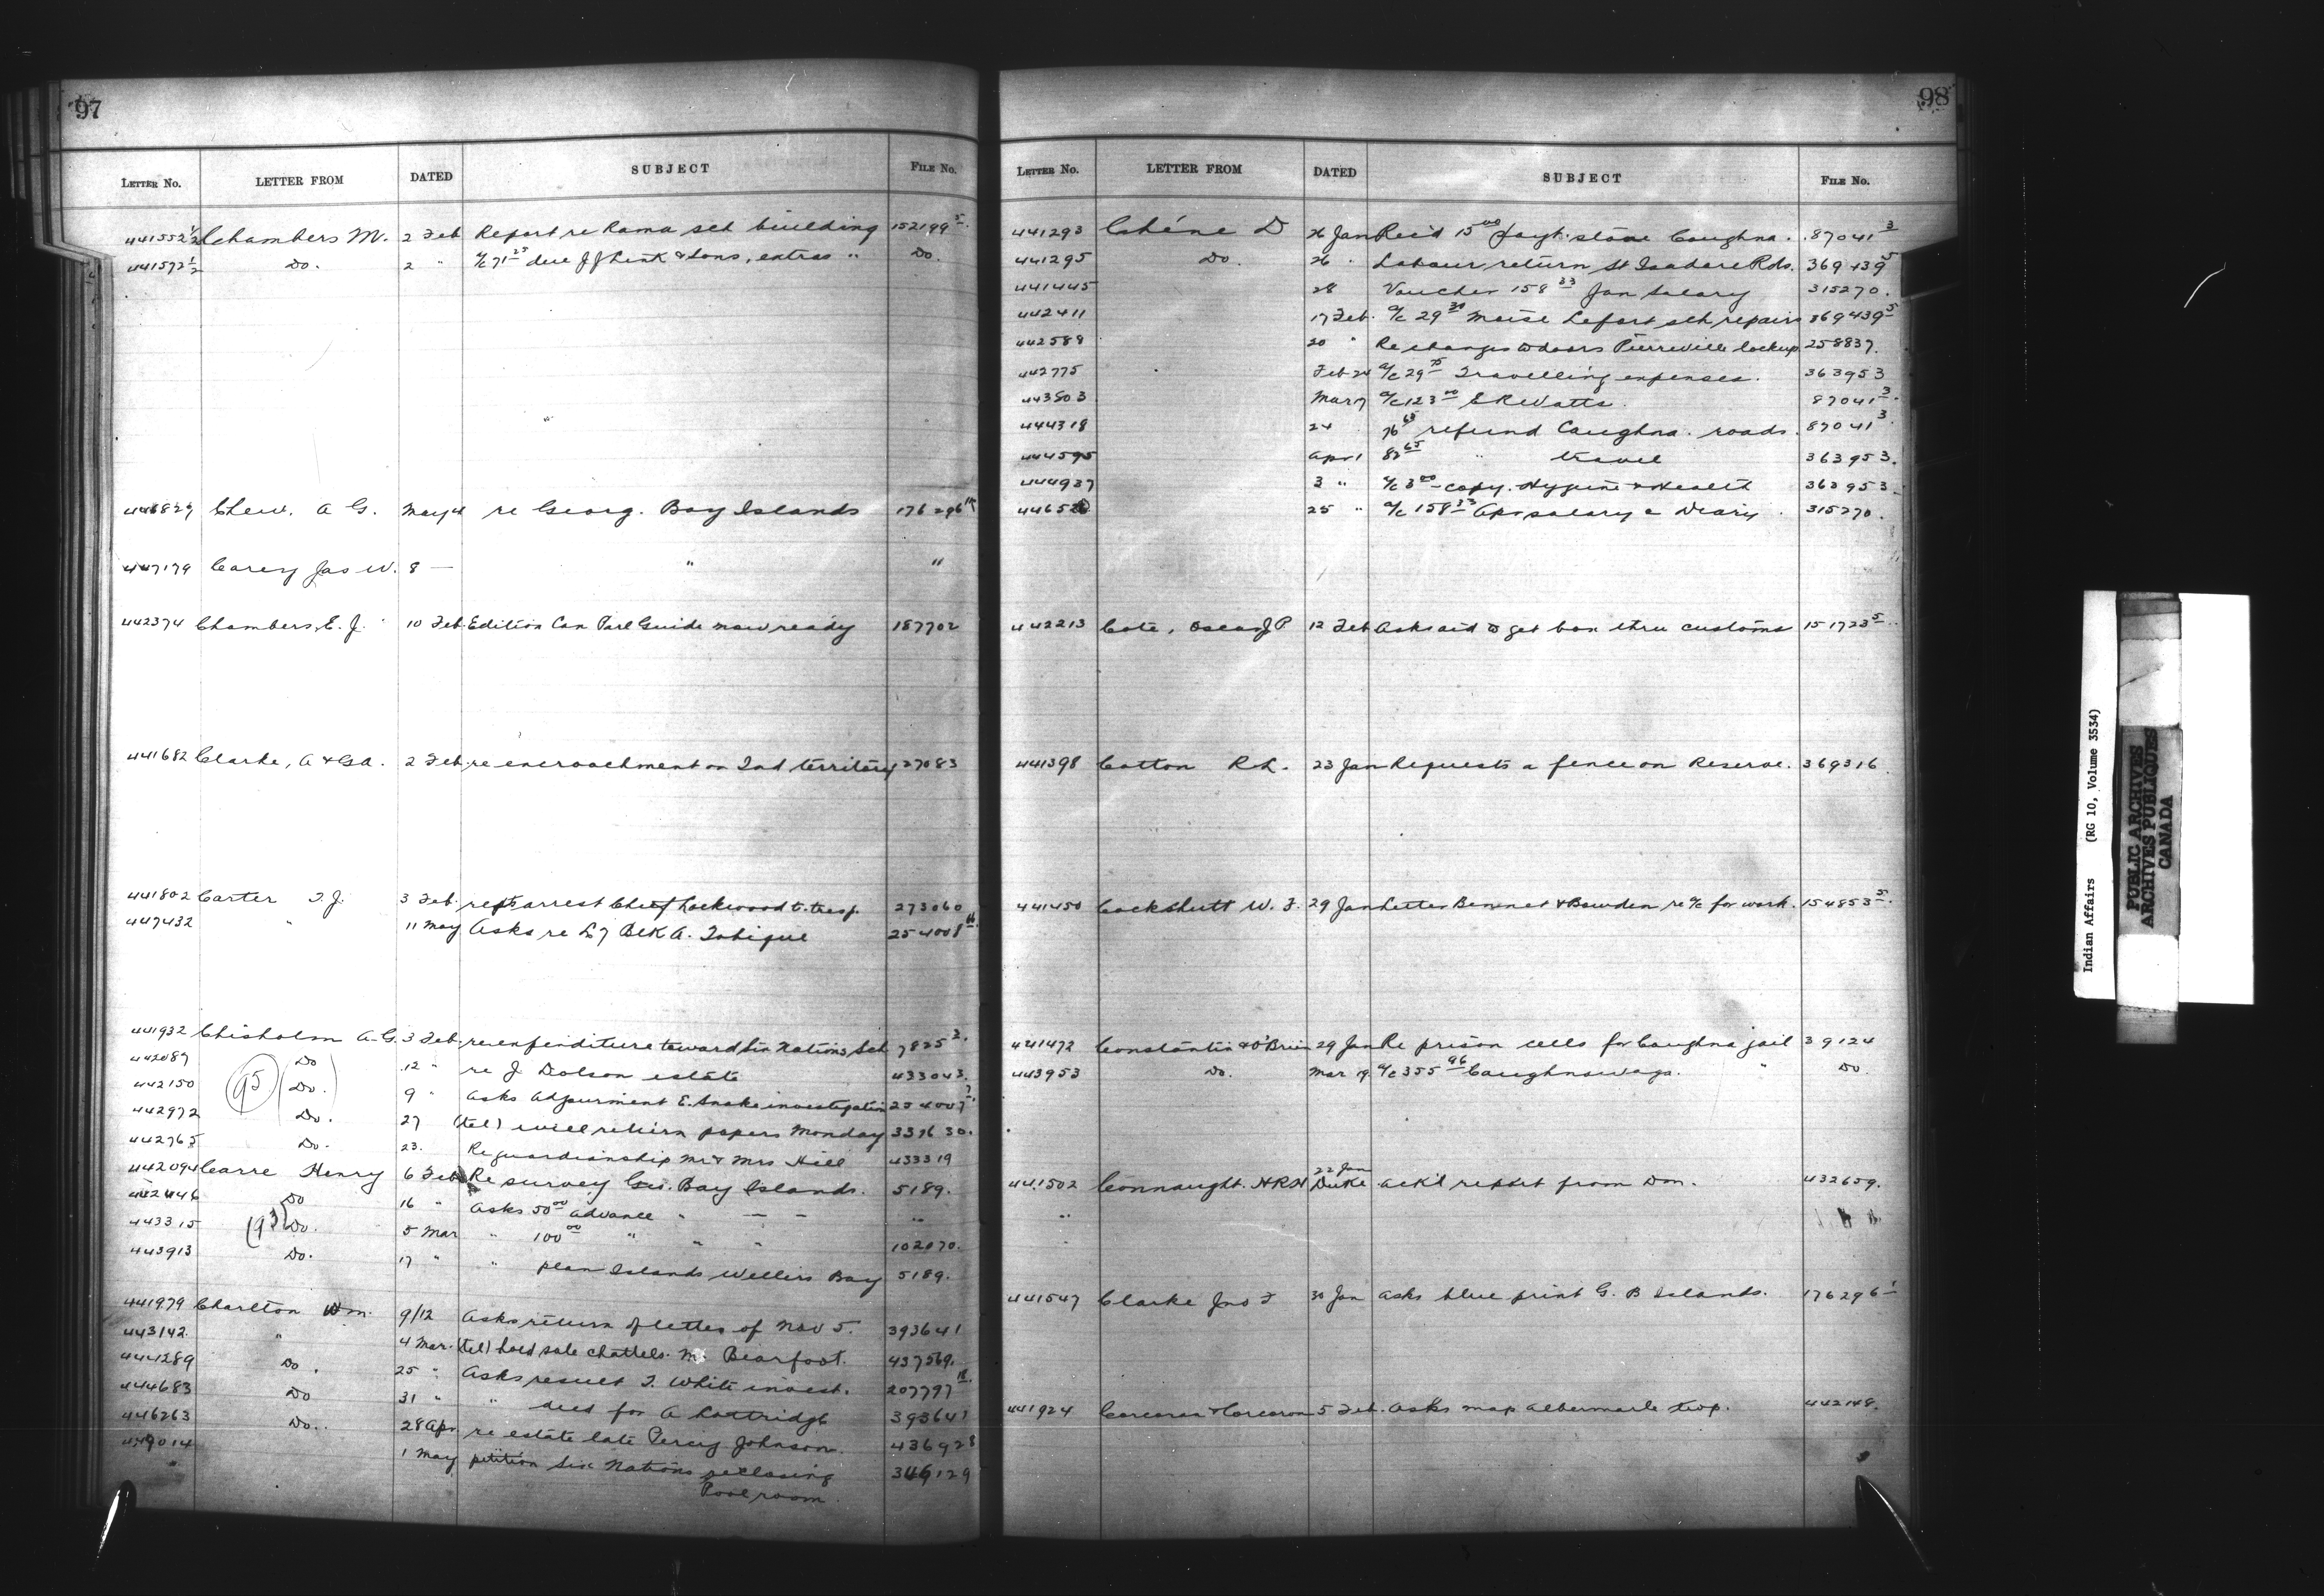 97
Letter No. LETTER FROM DATED SUBJECT File No.
441552½ Chambers M. 2 Feb Report re Rama sch building 152199 5
441572½ Do. 2 " a/c 71 25 due J J Link & Sons, extras " Do.
Chew, A G. May 4 re Georg. Bay Islands 176296
447179 Carey Jas W. 8 — " "
442374 Chambers, E. J. 10 Feb. Edition Can Parl Guide now ready 187702
441682 Clarke, A & G A. 2 Feb. re encroachment on Ind territory 27083
441802 Carter T. J. 3 Feb. arrest Chief Lockwood 273060
447432 " 11 May Asks re L 7 Blk A. Tobique 254008
441932 Chisholm A. G. 3 Feb. re expenditure toward Six Nations Sch 7825 2.
442089 Do 12 " re J Dolson estate 433043.
442150 (95) (Do.) 9 " Asks Adjournment E. Snake investigation 254007
442972 Do. 27 (tel) will return papers Monday 331630.
442765 Do. 23. Re guardianship Mr & Mrs Hill 433319
442094 Carre Henry 6 Feb Re survey Geo. Bay Islands. 5189.
442446 Do 16 " Asks 50 00 advance " — — "
443315 (93) Do. 5 Mar " 100 00 " " " 102070.
443913 Do. 17 " " plan Islands Wellers Bay 5189.
441979 Charlton Wm. 9/12 Asks return of letter of Nov 5. 393641
443142. " 4 Mar. (tel) hold sale chattels. M. Bearfoot. 437569.
444289 Do. 25 " Asks result T. White invest. 207797 18.
444683 Do 31 " " deed for A Loatridge 393641
446263 Do.. 28 Apr re estate late Percy Johnson. 436928
1 May petition Six Nations re closing 346129
Pool room.
98
Letter No. LETTER FROM DATED SUBJECT File No.
441293 D 26 Jan Rec'd 15 00 payt. stone Caughna. 87041 3
441295 Do. 26 " Labour return St Isadore Rds. 369439 5
441445 28 Voucher 158 33 Jan Salary 315270.
442411 17 Feb. a/c 29 30 Moise Lefort sch repairs 369439 5
442589 20 " Re changes to doors Pierreville lockup. 258837.
442775 Feb 24 a/c 29 75 Travelling expenses. 363953
443503 Mar 7 a/c 123 00 E R Watts. 87041 3.
444318 24 76 65 refund Caughna. roads. 87041 3.
444595 Apr 1 " travel 363953.
444937 3 " a/c 3 00 - copy. Hygiene & Health 363953.
25 " a/c 158 33 Apr salary & Diary. 315270.
442213 Cote, Oscar J P. 12 Feb Asks aid to get box thru customs 151723 5.
441398 Cotton R L. 23 Jan Requests a fence on Reserve. 369316
441450 Cockshutt W. F. 29 Jan Letter Bennet & Bowden re a/c for work. 154853 5.
441472 Constantin & O'Brien 29 Jan Re prison cells for Caughna jail 39124
443953 Do. Mar 19. a/c 355 96 Caughnawaga. " Do.
22 Jan
441502 Connaught. HRH Duke. ack'l report from Dom. 432659.
441547 Clarke Jno F 30 Jan asks blue print G. B Islands. 176296 1
441924 Corcoran & Corcoran 5 Feb. Asks map Albermarle twp. 442148.
Indian Affairs (RG 10, Volume 3534)
PUBLIC ARCHIVES
ARCHIVES PUBLIQUES
CANADA